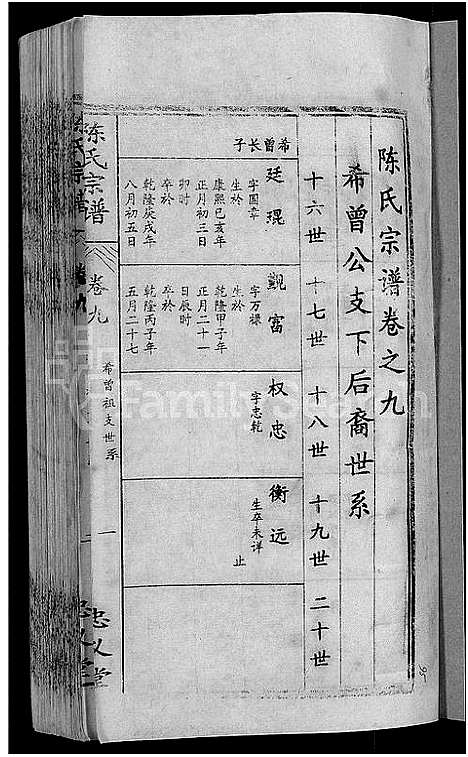 陈氏宗谱卷之九
希曾公支下后裔世系
十六世 十七世 十八世 十九世 二十世
希曾长子
廷琨
字圃章
生於
康熙己亥年
正月初三日
卯时
卒於
乾隆庚戌年
八月初五日
觐富
字万樑
生於
乾隆甲子年
正月二十一
日辰时
卒於
乾隆丙子年
五月二十七
权忠
字忠乾
衡远
生卒未详
止
陈氏宗谱
卷九
希曾祖支世系
一
忠义堂
FamilySearch